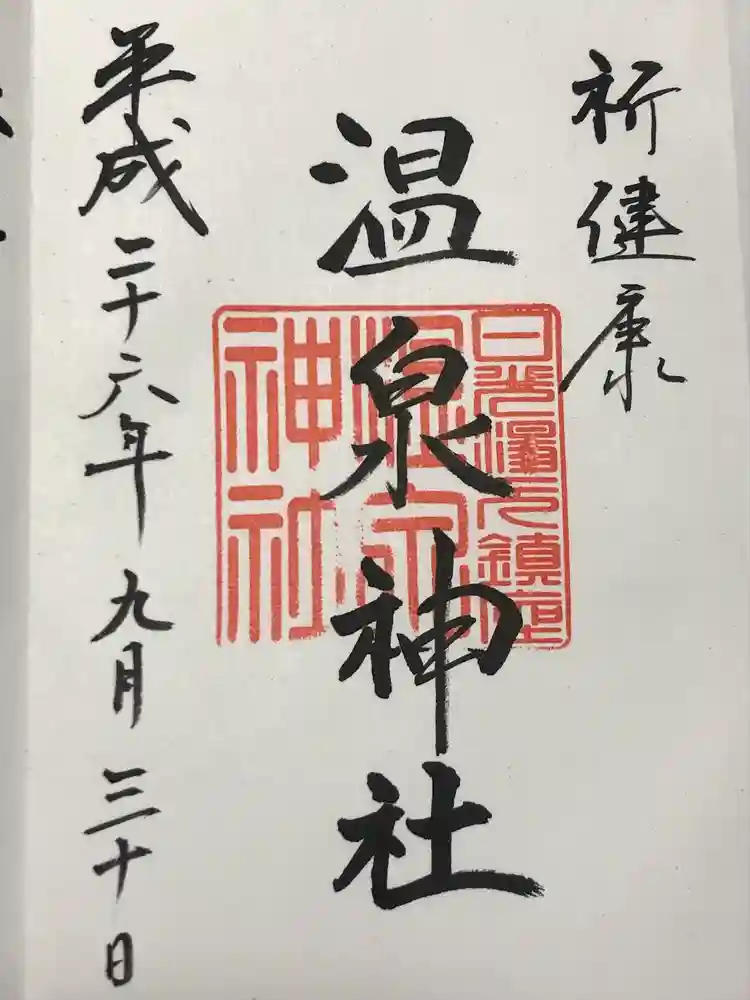 祈健康
温泉神社
平成二十六年九月三十日
日光鎮座
温泉
神社